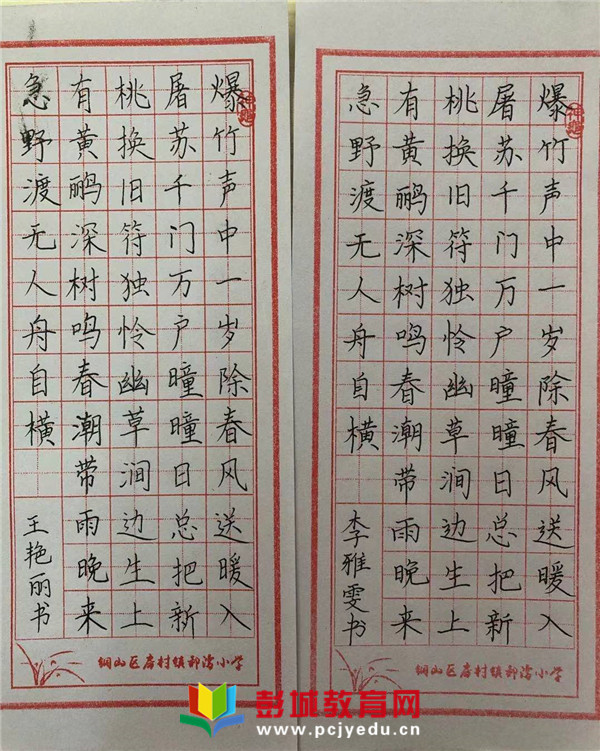 爆竹声中一岁除春风送暖入
屠苏千门万户曈曈日总把新
桃换旧符独怜幽草涧边生上
有黄鹂深树鸣春潮带雨晚来
急野渡无人舟自横
王艳丽书
铜山区房村镇郝湾小学
爆竹声中一岁除春风送暖入
屠苏千门万户曈曈日总把新
桃换旧符独怜幽草涧边生上
有黄鹂深树鸣春潮带雨晚来
急野渡无人舟自横
李雅雯书
铜山区房村镇郝湾小学
彭城教育网
www.pcjyedu.cn